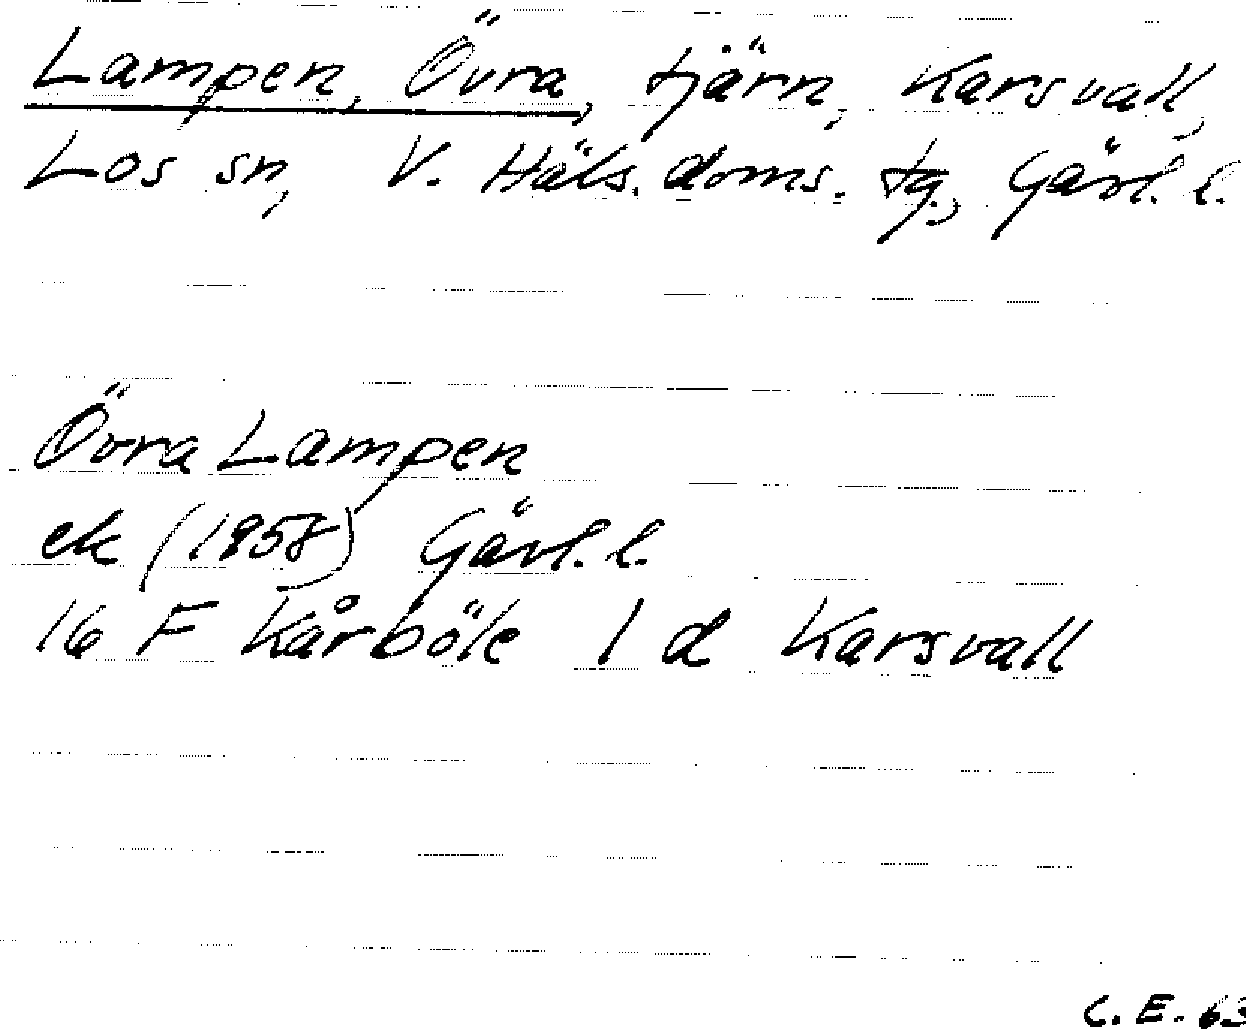 Lampen, Övra, tjärn, Karsvall,
Los sn, V. Häls. doms. tg., Gävl. l.
Övra Lampen
ek (1958) Gävl. l.
16 F Kårböle 1 d Karsvall
C. E. 63